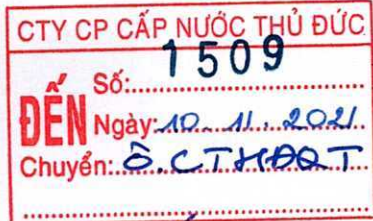 CTY CP CẤP NƯỚC THỦ ĐỨC
ĐẾN
Số: 1509
Ngày: 10. 11. 2021
Chuyển: Ô. CTHĐQT